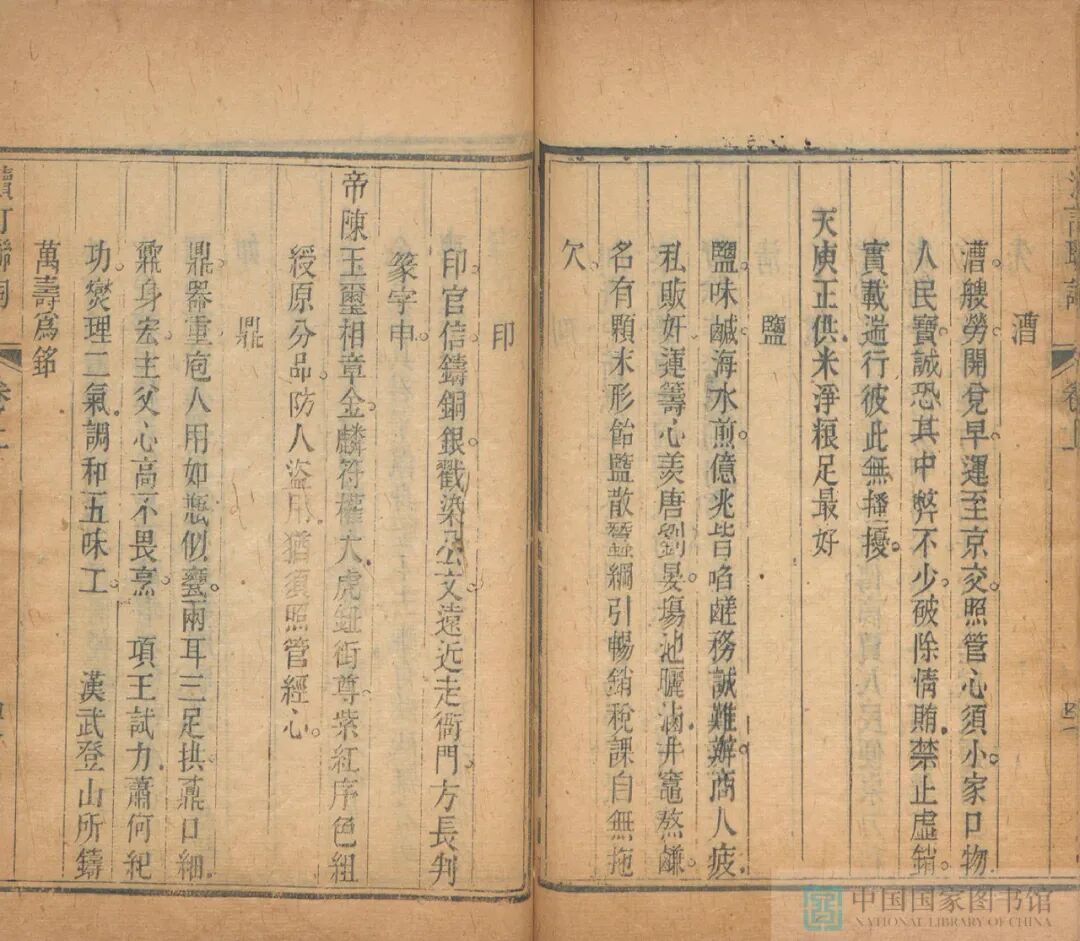 漕
漕艘勞開兌早運至京交照管心須小家口物
人民寶誠恐其中弊不少破除情賄禁止虛銷
實載遄行彼此無擾
天庾正供米淨粮足最好
鹽
鹽味鹹海水煎億兆皆啗鹺務誠難辦商人疲
私販奸運籌心羨唐劉晏塲池曬滷井竈熬鹻
名有顆末形飴鹽散蠶綱引暢銷稅課自無拖
欠
印
印官信鑄銅銀戳染公文遠近走衙門方長判
篆字申
帝陳玉璽相章金麟符權大虎鈕銜尊紫紅序色組
綬原分品防人盜用猶須照管經心
鼎
鼎器重庖人用如甑似甕兩耳三足拱鼐口細
鼐身宏主父心高不畏烹項王試力蕭何紀
功爕理二氣調和五味工漢武登山所鑄
萬壽爲銘
中国国家图书馆
NATIONAL LIBRARY OF CHINA